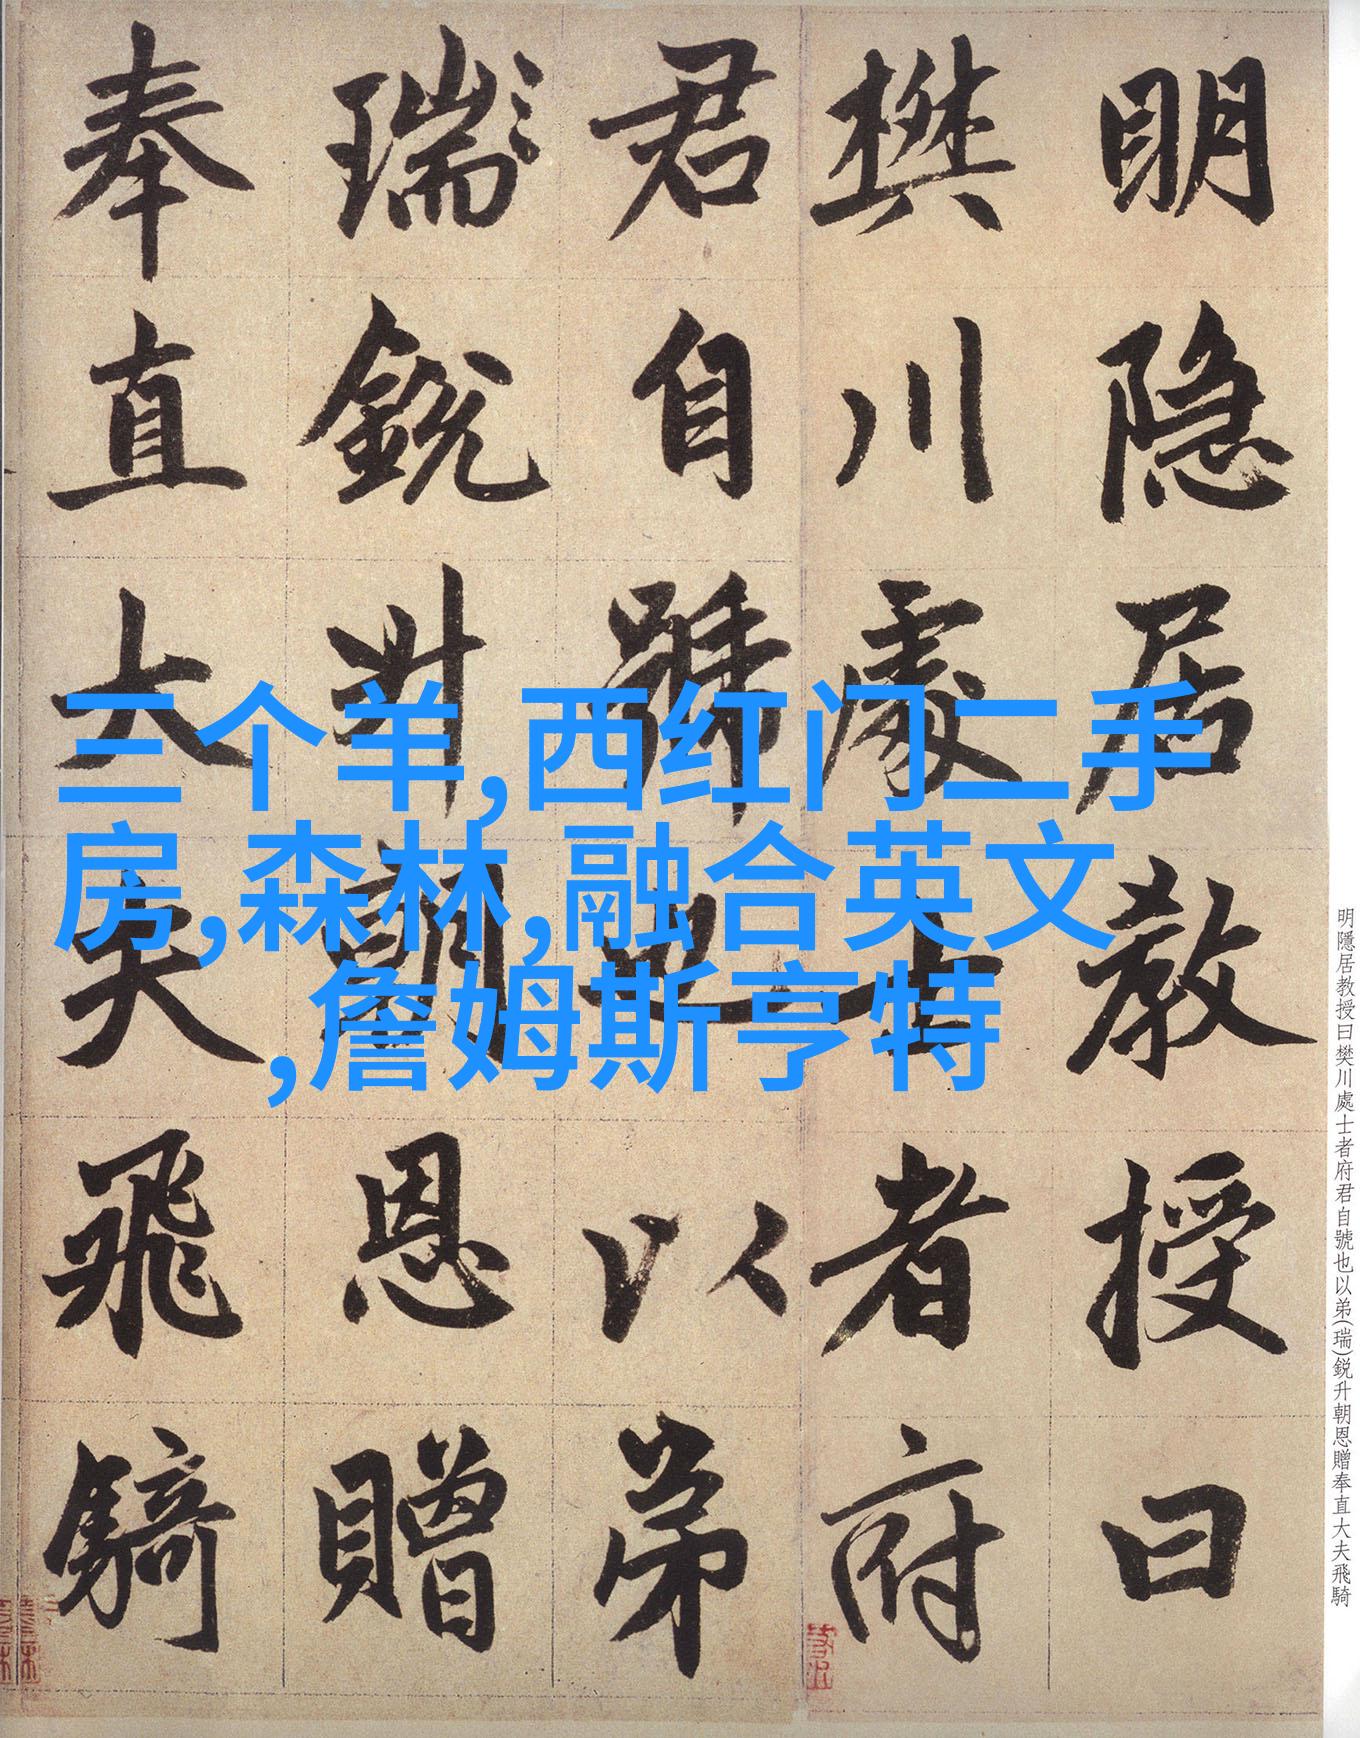 三个羊,西红门二手
房,森林,融合英文
,詹姆斯亨特
明隐居教授曰
樊川處士者府
君自號也以弟
瑞銳升朝恩贈
奉直大夫飛騎
明隱居教授曰樊川處士者府君自號也以弟(瑞)鋭升朝恩贈奉直大夫飛騎